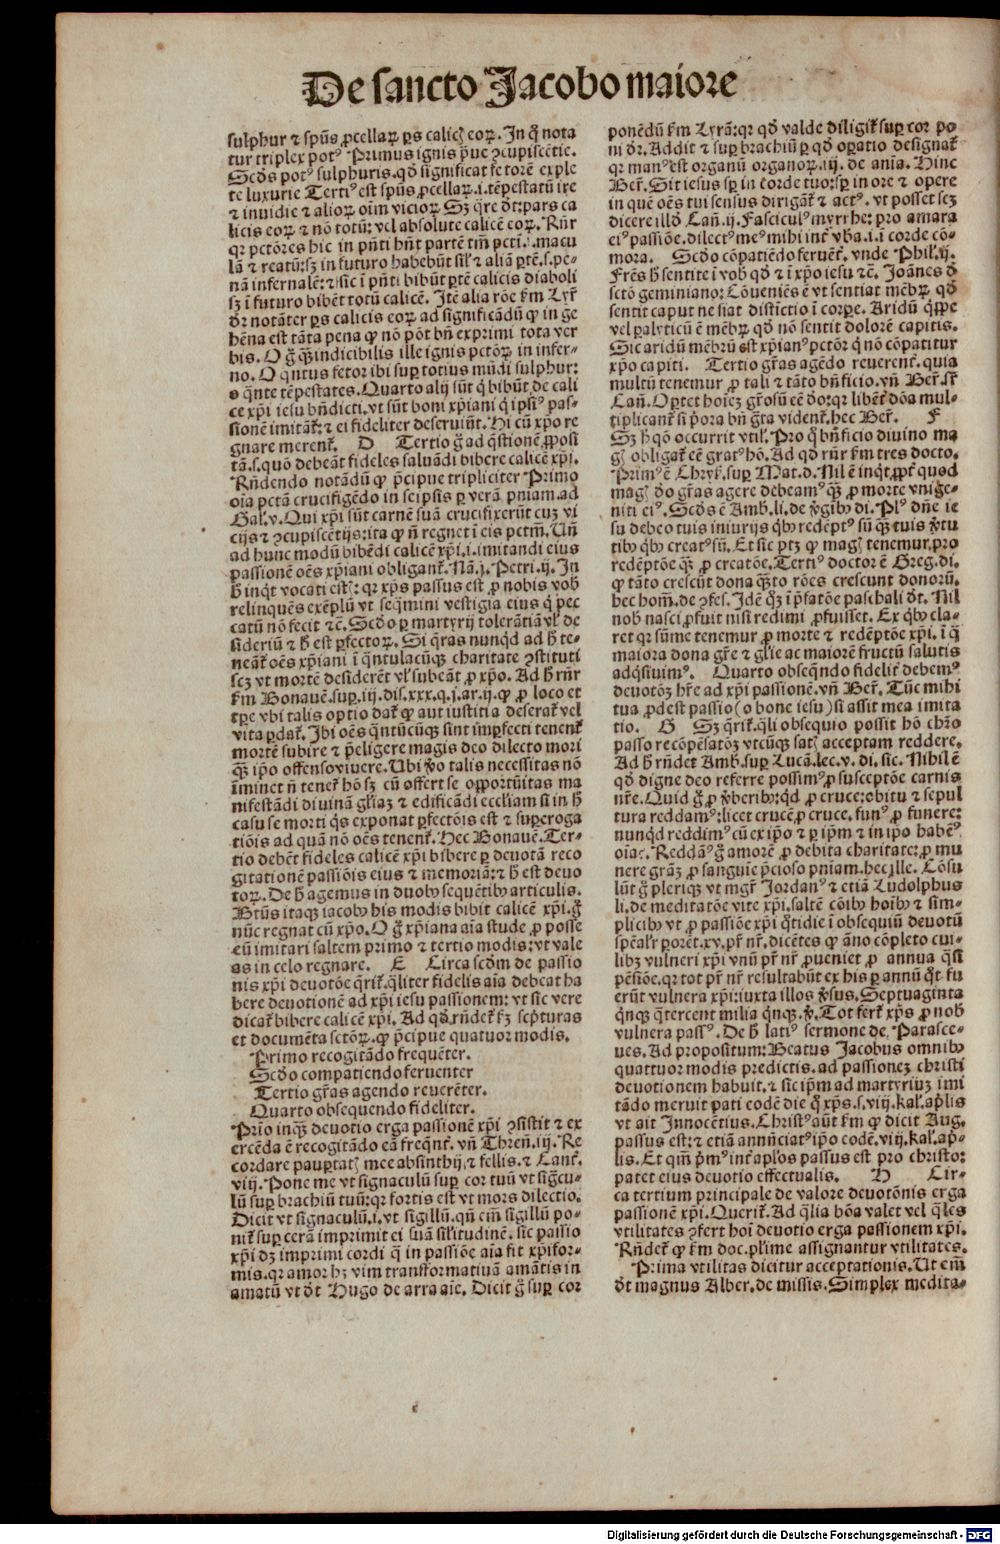 De sancto Jacobo maiore
sulphur ⁊ spũs ꝓcellaꝝ ꝑs calicꝭ eoꝝ. In q̃ nota
tur triplex potꝰ Primus ignis p̃ue ꝯcupiscẽtie.
Scd̃s potꝰ sulphuris. qd̃ significat fetorẽ exple
te luxurie Tertiꝰ est spũs ꝓcellaꝝ .i. tẽpestatũ ire
⁊ inuidie ⁊ alioꝝ oĩm vicioꝝ. Sʒ q̃re d̃t: pars ca
licis eoꝝ ⁊ nõ totũ: vel absolute calicẽ eoꝝ. Rñr
qꝛ pctõres hic in pñti hñt partẽ tm̃ pcti. s. macu
lã ⁊ reatũ: sʒ in futuro habebũt sil̃ ⁊ aliã ꝑtẽ. s. pe-
nã infernalẽ: ⁊ sic ĩ pñti bibũt ꝑtẽ calicis diaboli
sʒ ĩ futuro bibẽt totũ calicẽ. Itẽ alia rõe ẜm Lyr̃
d̃r notãter ꝑs calicis eoꝝ ad significãdũ ꝙ in ge
hẽna est tãta pena ꝙ nõ põt bñ exprimi tota ver
bis. O g̃ qʒ indicibilis ille ignis pctõꝝ in infer-
no. O q̃ntus fetor ibi suꝑ totius mũdi sulphur:
o q̃nte tẽpestates. Quarto alij sũt q̃ bibũt de cali
ce xp̃i iesu bñdicti. vt sũt boni xp̃iani q̃ ipsiꝰ pas-
sionẽ imitãt᷑: ⁊ ei fideliter deseruiũt. Hi cũ xp̃o re
gnare merent᷑. D Tertio g̃ ad q̃stionẽ ꝓposi
tã. s. quõ debeãt fideles saluãdi bibere calicẽ xp̃i.
Rñdendo notãdũ ꝙ p̃cipue tripliciter Primo
oĩa pctã crucifigẽdo in seipsis ꝑ verã pniam. ad
Gal. v. Qui xp̃i sũt carnẽ suã crucifixerũt cuʒ vi
cijs ⁊ ꝯcupiscẽtijs: ita ꝙ ñ regnet ĩ eis pctm̃. Uñ
ad hunc modũ bibẽdi calicẽ xp̃i. i. imitandi eius
passionẽ oẽs xp̃iani obligant᷑. Nã. j. Petri. ij. In
h̃ inqt̃ vocati estꝭ: qꝛ xp̃s passus est ꝓ nobis vob̃
relinquẽs exẽplũ vt seq̃mini vestigia eius q̃ pec
catũ nõ fecit ⁊c̃. Scd̃o ꝑ martyrij tolerãtiã vl̃ de
sideriũ ⁊ h̃ est ꝑfectoꝝ. Si q̃ras nunqd̃ ad h̃ te-
neãt᷑ oẽs xp̃iani ĩ q̃ntulacũqʒ charitate ꝯstituti
scʒ vt mortẽ desiderẽt vl̃ subeãt ꝓ xp̃o. Ad h̃ rñr
ẜm Bonauẽ. suꝑ. iij. dis. xxx. q. j. ar. ij. ꝙ ꝓ loco et
tꝑe vbi talis optio dat᷑ ꝙ aut iustitia deserat᷑ vel
vita ꝑdat᷑. Ibi oẽs q̃ntũcũqʒ sint imꝑfecti tenent᷑
mortẽ subire ⁊ p̃eligere magis deo dilecto mori
qʒ ip̃o offenso viuere. Ubi v̾o talis necessitas nõ
ĩminet ñ tenet᷑ hõ sʒ cũ offert se opportũitas ma
nifestãdi diuinã gl̃iaʒ ⁊ edificãdi eccl̃iam si in h̃
casu se morti q̃s exponat ꝑfectiõis est ⁊ suꝑeroga
tiõis ad quã nõ oẽs tenent᷑. Hec Bonauẽ. Ter-
tio debẽt fideles calicẽ xp̃i bibere ꝑ deuotã reco
gitationẽ passiõis eius ⁊ memoriã: ⁊ h̃ est deuo
toꝝ. De h̃ agemus in duobꝰ sequẽtibꝰ articulis.
Btũs itaqʒ iacobꝰ his modis bibit calicẽ xp̃i. g̃
nũc regnat cũ xp̃o. O g̃ xp̃iana aĩa stude ꝓ posse
eũ imitari saltem primo ⁊ tertio modis: vt vale
as in celo regnare. E Circa scd̃m de passio
nis xp̃i deuotõe q̃rit᷑. q̃liter fidelis aĩa debeat ha
bere deuotionẽ ad xp̃i iesu passionem: vt sic vere
dicat᷑ bibere calicẽ xp̃i. Ad qd̃ rñdet᷑ ẜʒ scp̃turas
et documẽta sctõꝝ. ꝙ p̃cipue quatuor modis.
Primo recogitãdo frequẽter.
Scd̃o compatiendo feruenter
Tertio gr̃as agendo reuerẽter.
Quarto obsequendo fideliter.
Prĩo inqʒ deuotio erga passionẽ xp̃i ꝯsistit ⁊ ex
ercẽda ẽ recogitãdo eã freq̃nt᷑. vñ Thren̄. iij. Re
cordare pauꝑtatꝭ mee absinthij ⁊ fellis. ⁊ Cant᷑.
viij. Pone me vt signaculũ suꝑ cor tuũ vt sig̃cu-
lũ suꝑ brachiũ tuũ: qꝛ fortis est vt mors dilectio.
Dicit vt signaculũ. i. vt sigillũ. qñ em̃ sigillũ po-
nit᷑ suꝑ cerã imprimit ei suã sil̃itudinẽ. sic passio
xp̃i dʒ imprimi cordi q̃ in passiõe aĩa fit xp̃ifor-
mis. qꝛ amor hʒ vim transformatiuã amãtis in
amatũ vt d̃t Hugo de arra aĩe. Dicit g̃ suꝑ cor
ponẽdũ ẜm Lyrã: qꝛ qd̃ valde diligit᷑ suꝑ cor po
ni d̃r. Addit ⁊ suꝑ brachiũ ꝑ qd̃ oꝑatio designat᷑
qꝛ manꝰ est organũ organoꝝ. iij. de anĩa. Hinc
Ber̃. Sit iesus sꝑ in corde tuo: sꝑ in ore ⁊ opere
in quẽ oẽs tui sensus dirigãt᷑ ⁊ actꝰ. vt posset scʒ
dicere illd̃ Can̄. ij. Fasciculꝰ myrrhe: pro amara
eiꝰ passiõe. dilectꝰ meꝰ mihi int᷑ vb̃a .i. ĩ corde cõ-
mora. Scd̃o cõpatiẽdo feruẽt᷑. vnde Phil. ij.
Frẽs h̃ sentite ĩ vob̃ qd̃ ⁊ ĩ xp̃o iesu ⁊c̃. Joãnes d̃
sctõ geminiano: Cõueniẽs ẽ vt sentiat mẽbꝝ qd̃
sentit caput ne fiat distictio ĩ corꝑe. Aridũ q̃ppe
vel ꝑalyticũ ẽ mẽbꝝ qd̃ nõ sentit dolorẽ capitis.
Sic aridũ mẽbrũ est xp̃ianꝰ pctõr q̃ nõ cõpatitur
xp̃o capiti. Tertio gr̃as agẽdo reuerent᷑. quia
multũ tenemur ꝓ tali ⁊ tãto bñficio. vñ Ber̃. sr̃
Can̄. Oꝑtet hoĩeʒ gr̃osũ eẽ d̃o: qꝛ libẽt᷑ d̃õa mul-
tiplicant᷑ si p̃ora bñ g̃ta vident᷑. hec Ber̃. F
Sʒ h̃ qõ occurrit vtil̃. Pro q̃ bñficio diuino ma
gꝭ obligat᷑ eẽ gratꝰ hõ. Ad qd̃ rñr ẜm tres docto.
Primꝰ ẽ Chryẜ. suꝑ Mat. d. Nil ẽ inqt̃. ꝓpt᷑ quod
magꝭ d̃o gr̃as agere debeamꝰ qʒ ꝓ morte vnige-
niti eiꝰ. Scd̃s ẽ Amb. li. de v̾gibꝰ di. Plꝰ dñe ie
su debeo tuis iniurijs qb̃ꝰ redẽptꝰ sũ qʒ tuis v̾tu
tibꝰ qb̃ꝰ creatꝰ sũ. Et sic ptʒ ꝙ magꝭ tenemur. pro
redẽptõe qʒ ꝓ creatõe. Tertiꝰ doctor ẽ Greg. di.
ꝙ tãto crescũt dona qʒto rões crescunt donorũ.
hec hom̃. de ꝯfes. Idẽ qʒ ĩ p̃fatõe paschali d̃t. Nil
nob̃ nasci ꝓfuit nisi redimi ꝓfuisset. Ex qb̃ꝰ cla-
ret qꝛ sũme tenemur ꝓ morte ⁊ redẽptõe xp̃i. ĩ q̃
maiora dona gr̃e ⁊ gl̃ie ac maiorẽ fructũ salutis
adqs̃tuimꝰ. Quarto obseqñdo fidelit᷑ debemꝰ
deuotõʒ hr̃e ad xp̃i passionẽ. vñ Ber̃. Tũc mihi
tua ꝓdest passio (o bone iesu) si assit mea imita
tio. G Sʒ q̃rit᷑. q̃li obsequio possit hõ chr̃o
passo recõpẽsatõʒ vtcũqʒ satꝭ acceptam reddere.
Ad h̃ rñdet Amb. suꝑ Lucã. lec. v. di. sic. Nihil ẽ
qd̃ digne deo referre possimꝰ ꝓ susceptõe carnis
nr̃e. Quid g̃ ꝓ v̾beribꝰ: qd̃ ꝓ cruce: obitu ⁊ sepul
tura reddamꝰ: licet crucẽ ꝓ cruce. funꝰ ꝓ funere:
nunqd̃ reddimꝰ cũ ex ip̃o ⁊ ꝑ ip̃m ⁊ in ip̃o habẽꝰ
oĩa. Reddãꝰ g̃ amorẽ ꝓ debita charitate: ꝓ mu
nere gr̃aʒ ꝓ sanguĩe p̃cioso pniam. hec ille. Cõsu
lũt g̃ pleriqʒ vt mgr̃ Jordanꝰ ⁊ etiã Ludolphus
li. de meditatõe vite xp̃i. saltẽ cõibꝰ hoĩbꝰ ⁊ sim-
plicibꝰ vt ꝓ passiõe xp̃i q̃tidie ĩ obsequiũ deuotũ
spẽal̃r ꝑorẽt. xv. pr̃ nr̃. dicẽtes ꝙ ãno cõpleto cui-
libʒ vulneri xp̃i vnũ pr̃ nr̃ ꝓueniet ꝓ annua q̃si
pẽsiõe. qꝛ tot pr̃ nr̃ resultabũt ex his ꝑ annũ q̃t fu
erũt vulnera xp̃i: iuxta illos v̾sus. Septuaginta
q̃nqʒ q̃tercent milia q̃nqʒ. v̾. Tot fert᷑ xp̃s ꝓ nob̃
vulnera passꝰ. De h̃ latiꝰ sermone de Parasce-
ues. Ad propositum: Beatus Jacobus omnibꝰ
quattuor modis predictis. ad passioneʒ christi
deuotionem habuit. ⁊ sic ip̃m ad martyriuʒ imi
tãdo meruit pati eodẽ die q̃ xp̃s. s. viij. kal̃. ap̃lis
vt ait Innocẽtius. Christꝰ aũt ẜm ꝙ dicit Aug.
passus est: ⁊ etiã annũciatꝰ ip̃o eodẽ. viij. kal̃. ap̃-
lis. Et qm̃ p̃mꝰ int᷑ apl̃os passus est pro christo:
patet eius deuotio effectualis. H Cir-
ca tertium principale de valore deuotõnis erga
passionẽ xp̃i. Querit᷑. Ad q̃lia bõa valet vel q̃les
vtilitates ꝯfert hoĩ deuotio erga passionem xp̃i.
Rñdet᷑ ꝙ ẜm doc. pl̃ime assignantur vtilitates.
Prima vtilitas dicitur acceptationis. Ut em̃
d̃t magnus Alber. de missis. Simplex medita-
Digitalisierung gefördert durch die Deutsche Forschungsgemeinschaft - DFG